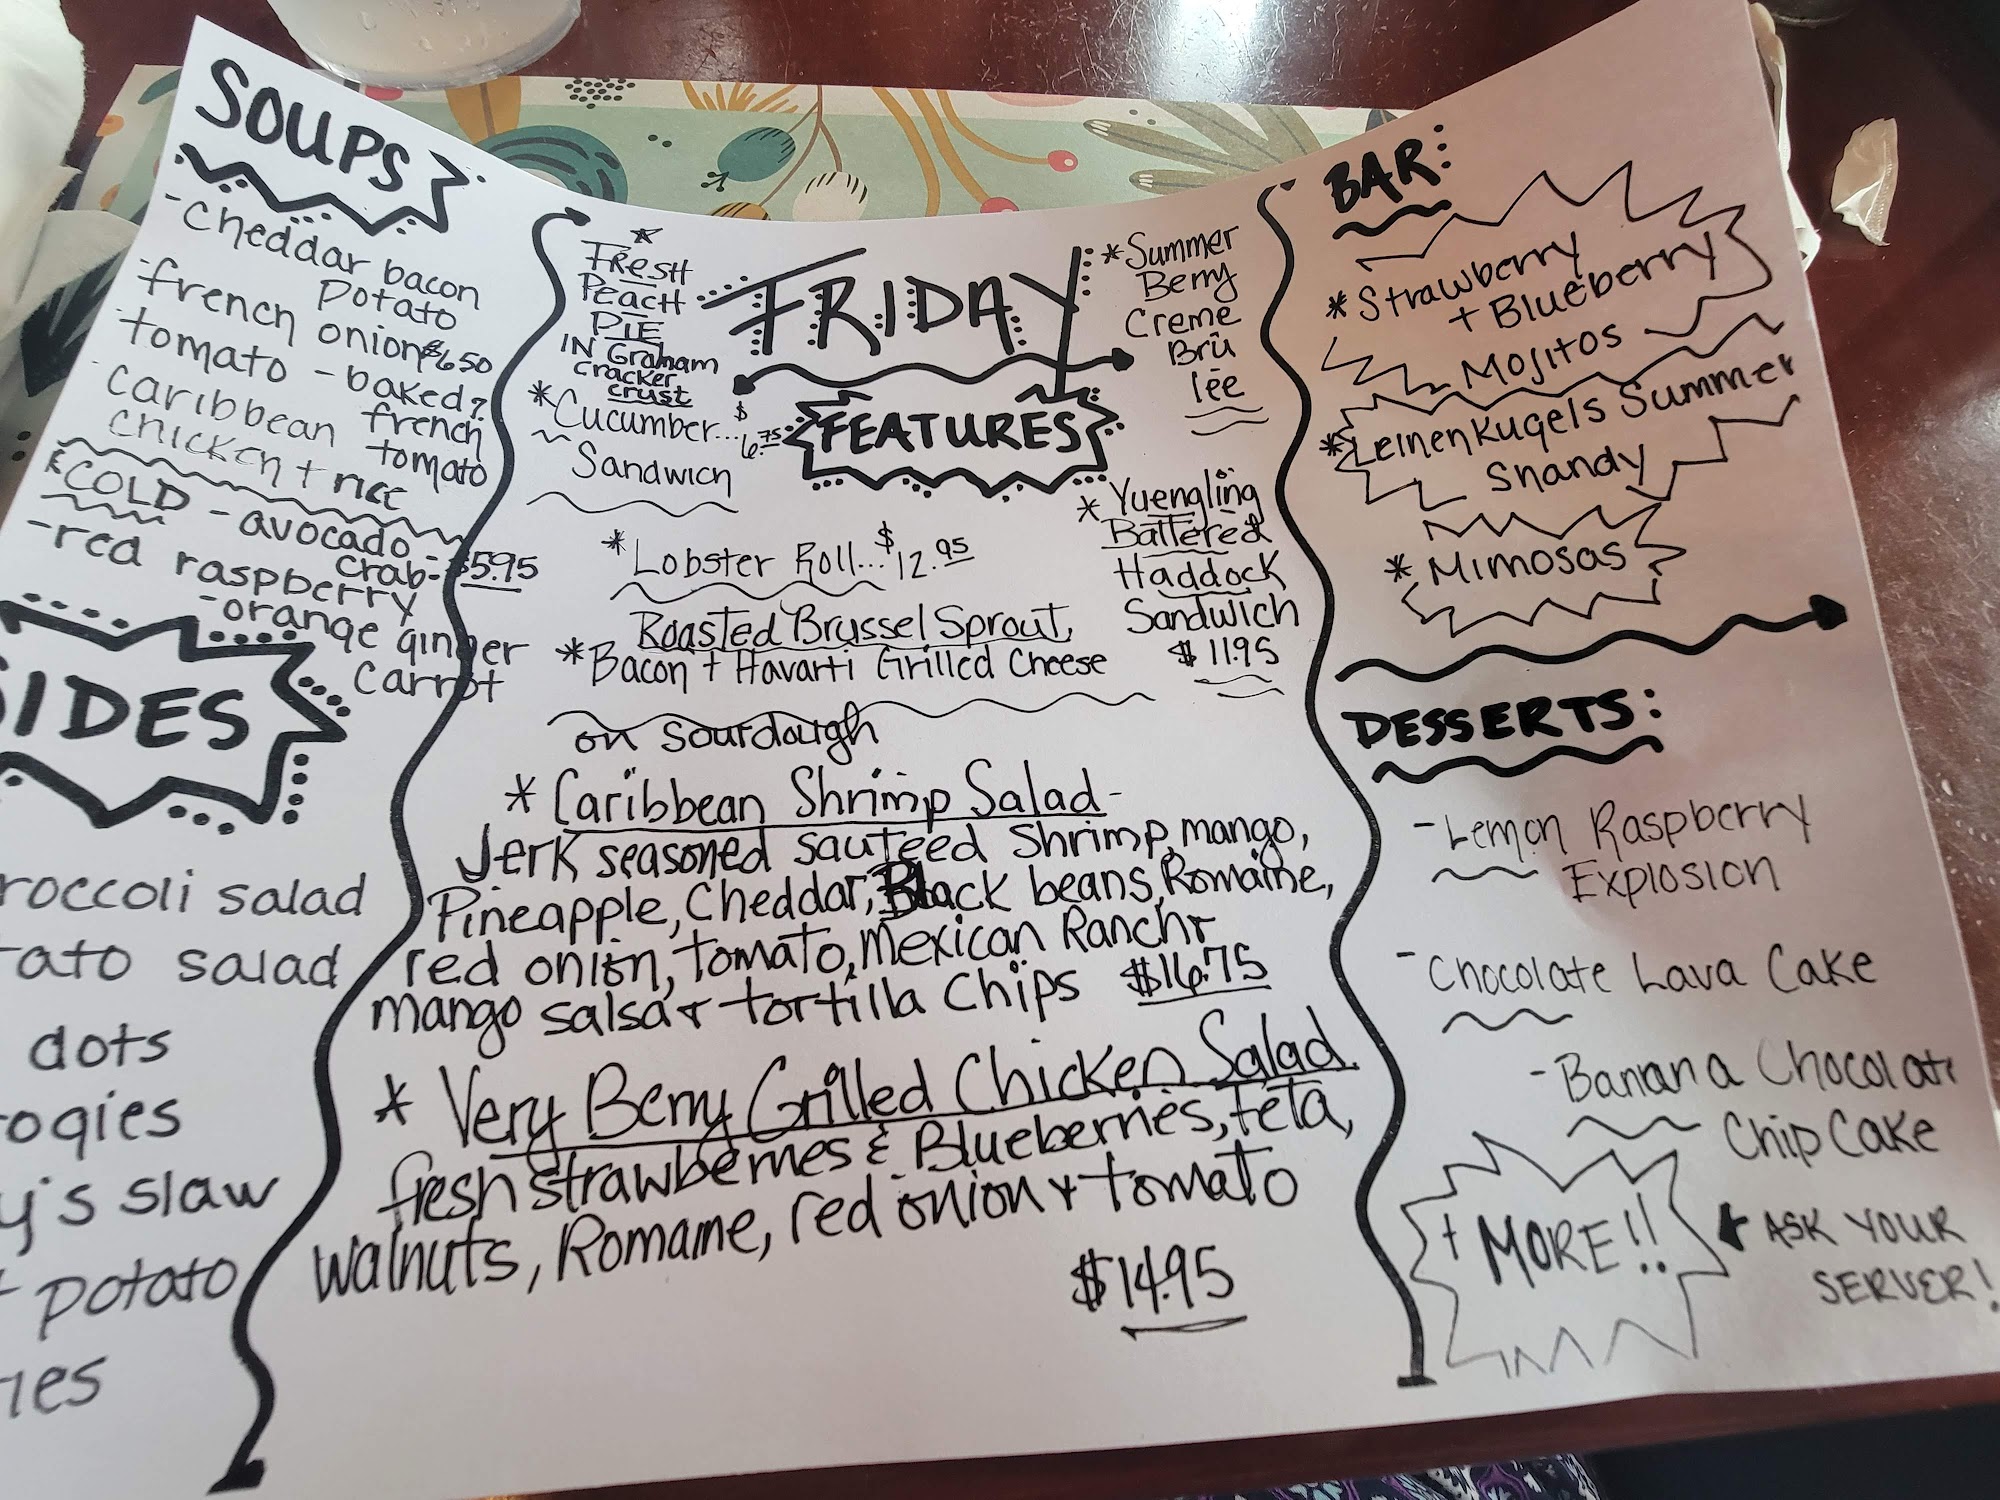 SOUPS
-cheddar bacon
potato
-french onion $6.50
-tomato -baked
french
tomato
-caribbean
chicken + rice
*COLD -avocado
crab- $5.95
-red raspberry
-orange ginger
carrot
SIDES
roccoli salad
tato salad
dots
rogies
y's slaw
potato
ies
FRIDAY
FEATURES
*
FResH
PeacH
PIE
IN Graham
cracker
crust
*Cucumber... $6.75
Sandwich
*Summer
Berry
Creme
Brü
lée
*Lobster Roll... $12.95
Roasted Brussel Sprout,
*Bacon + Havarti Grilled Cheese
on sourdough
*Yuengling
Battered
Haddock
Sandwich
$11.95
*Caribbean Shrimp Salad-
Jerk seasoned sauteed Shrimp, mango,
Pineapple, Cheddar, Black beans, Romaine,
red onion, tomato, Mexican Ranchr
mango salsa + tortilla Chips $16.75
*Very Berry Grilled Chicken Salad
fresh strawberries & Blueberries, feta,
walnuts, Romaine, red onion + tomato
$14.95
BAR:
*Strawberry
+ Blueberry
Mojitos
*LeinenKugels Summer
Shandy
*Mimosas
DESSERTS:
-Lemon Raspberry
Explosion
-Chocolate Lava Cake
-Banana Chocolate
Chip Cake
+ MORE!!
ASK YOUR
SERVER!